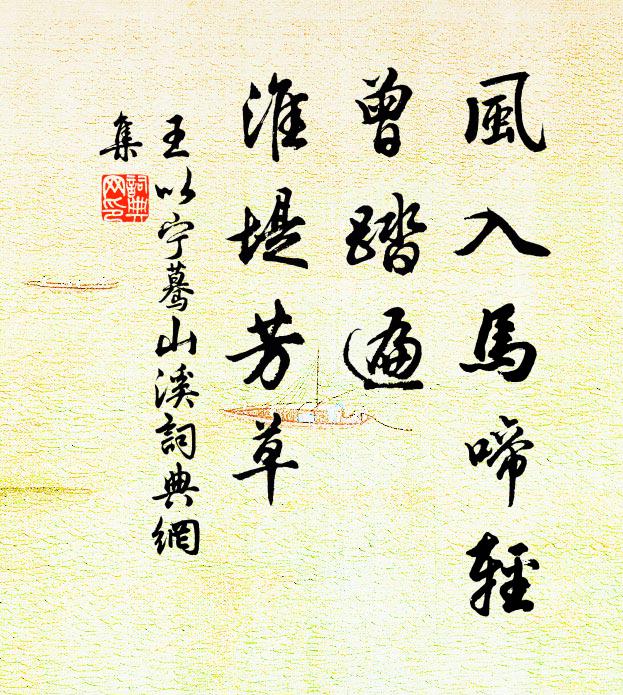 風入馬啼輕
曾踏遍
淮堤芳草
王以宁驀山溪詞典網
集
詞典網印